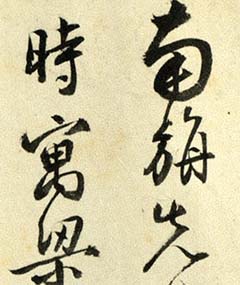 南旃先
時寓梁